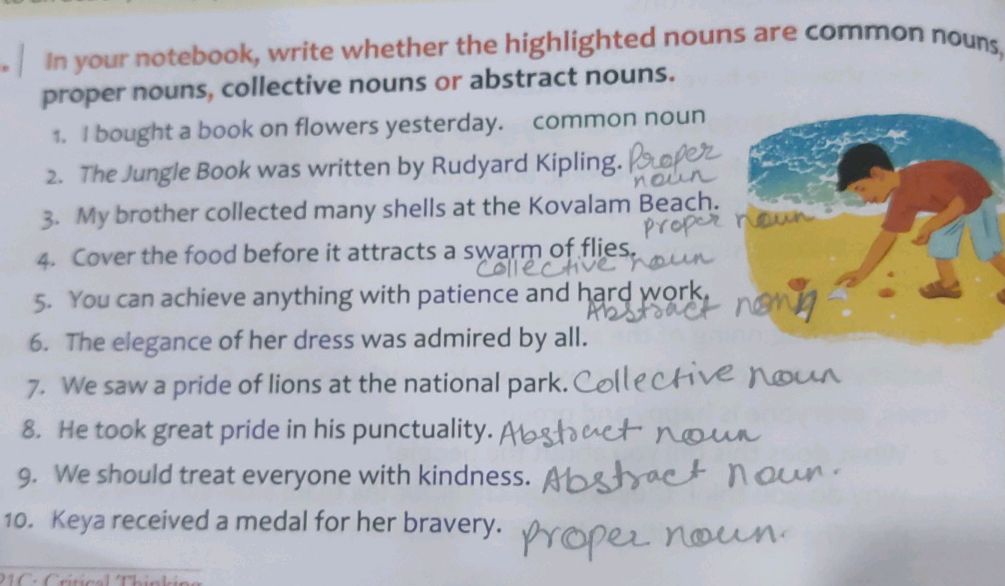 In your notebook, write whether the highlighted nouns are common nouns,
proper nouns, collective nouns or abstract nouns.
1. I bought a book on flowers yesterday. common noun
2. The Jungle Book was written by Rudyard Kipling. Proper
noun
3. My brother collected many shells at the Kovalam Beach.
proper noun
4. Cover the food before it attracts a swarm of flies.
collective noun
5. You can achieve anything with patience and hard work.
Abstract
6. The elegance of her dress was admired by all.
7. We saw a pride of lions at the national park. Collective noun
8. He took great pride in his punctuality. Abstract noun
9. We should treat everyone with kindness. Abstract noun.
10. Keya received a medal for her bravery. proper noun.
21C: Critical Thinking